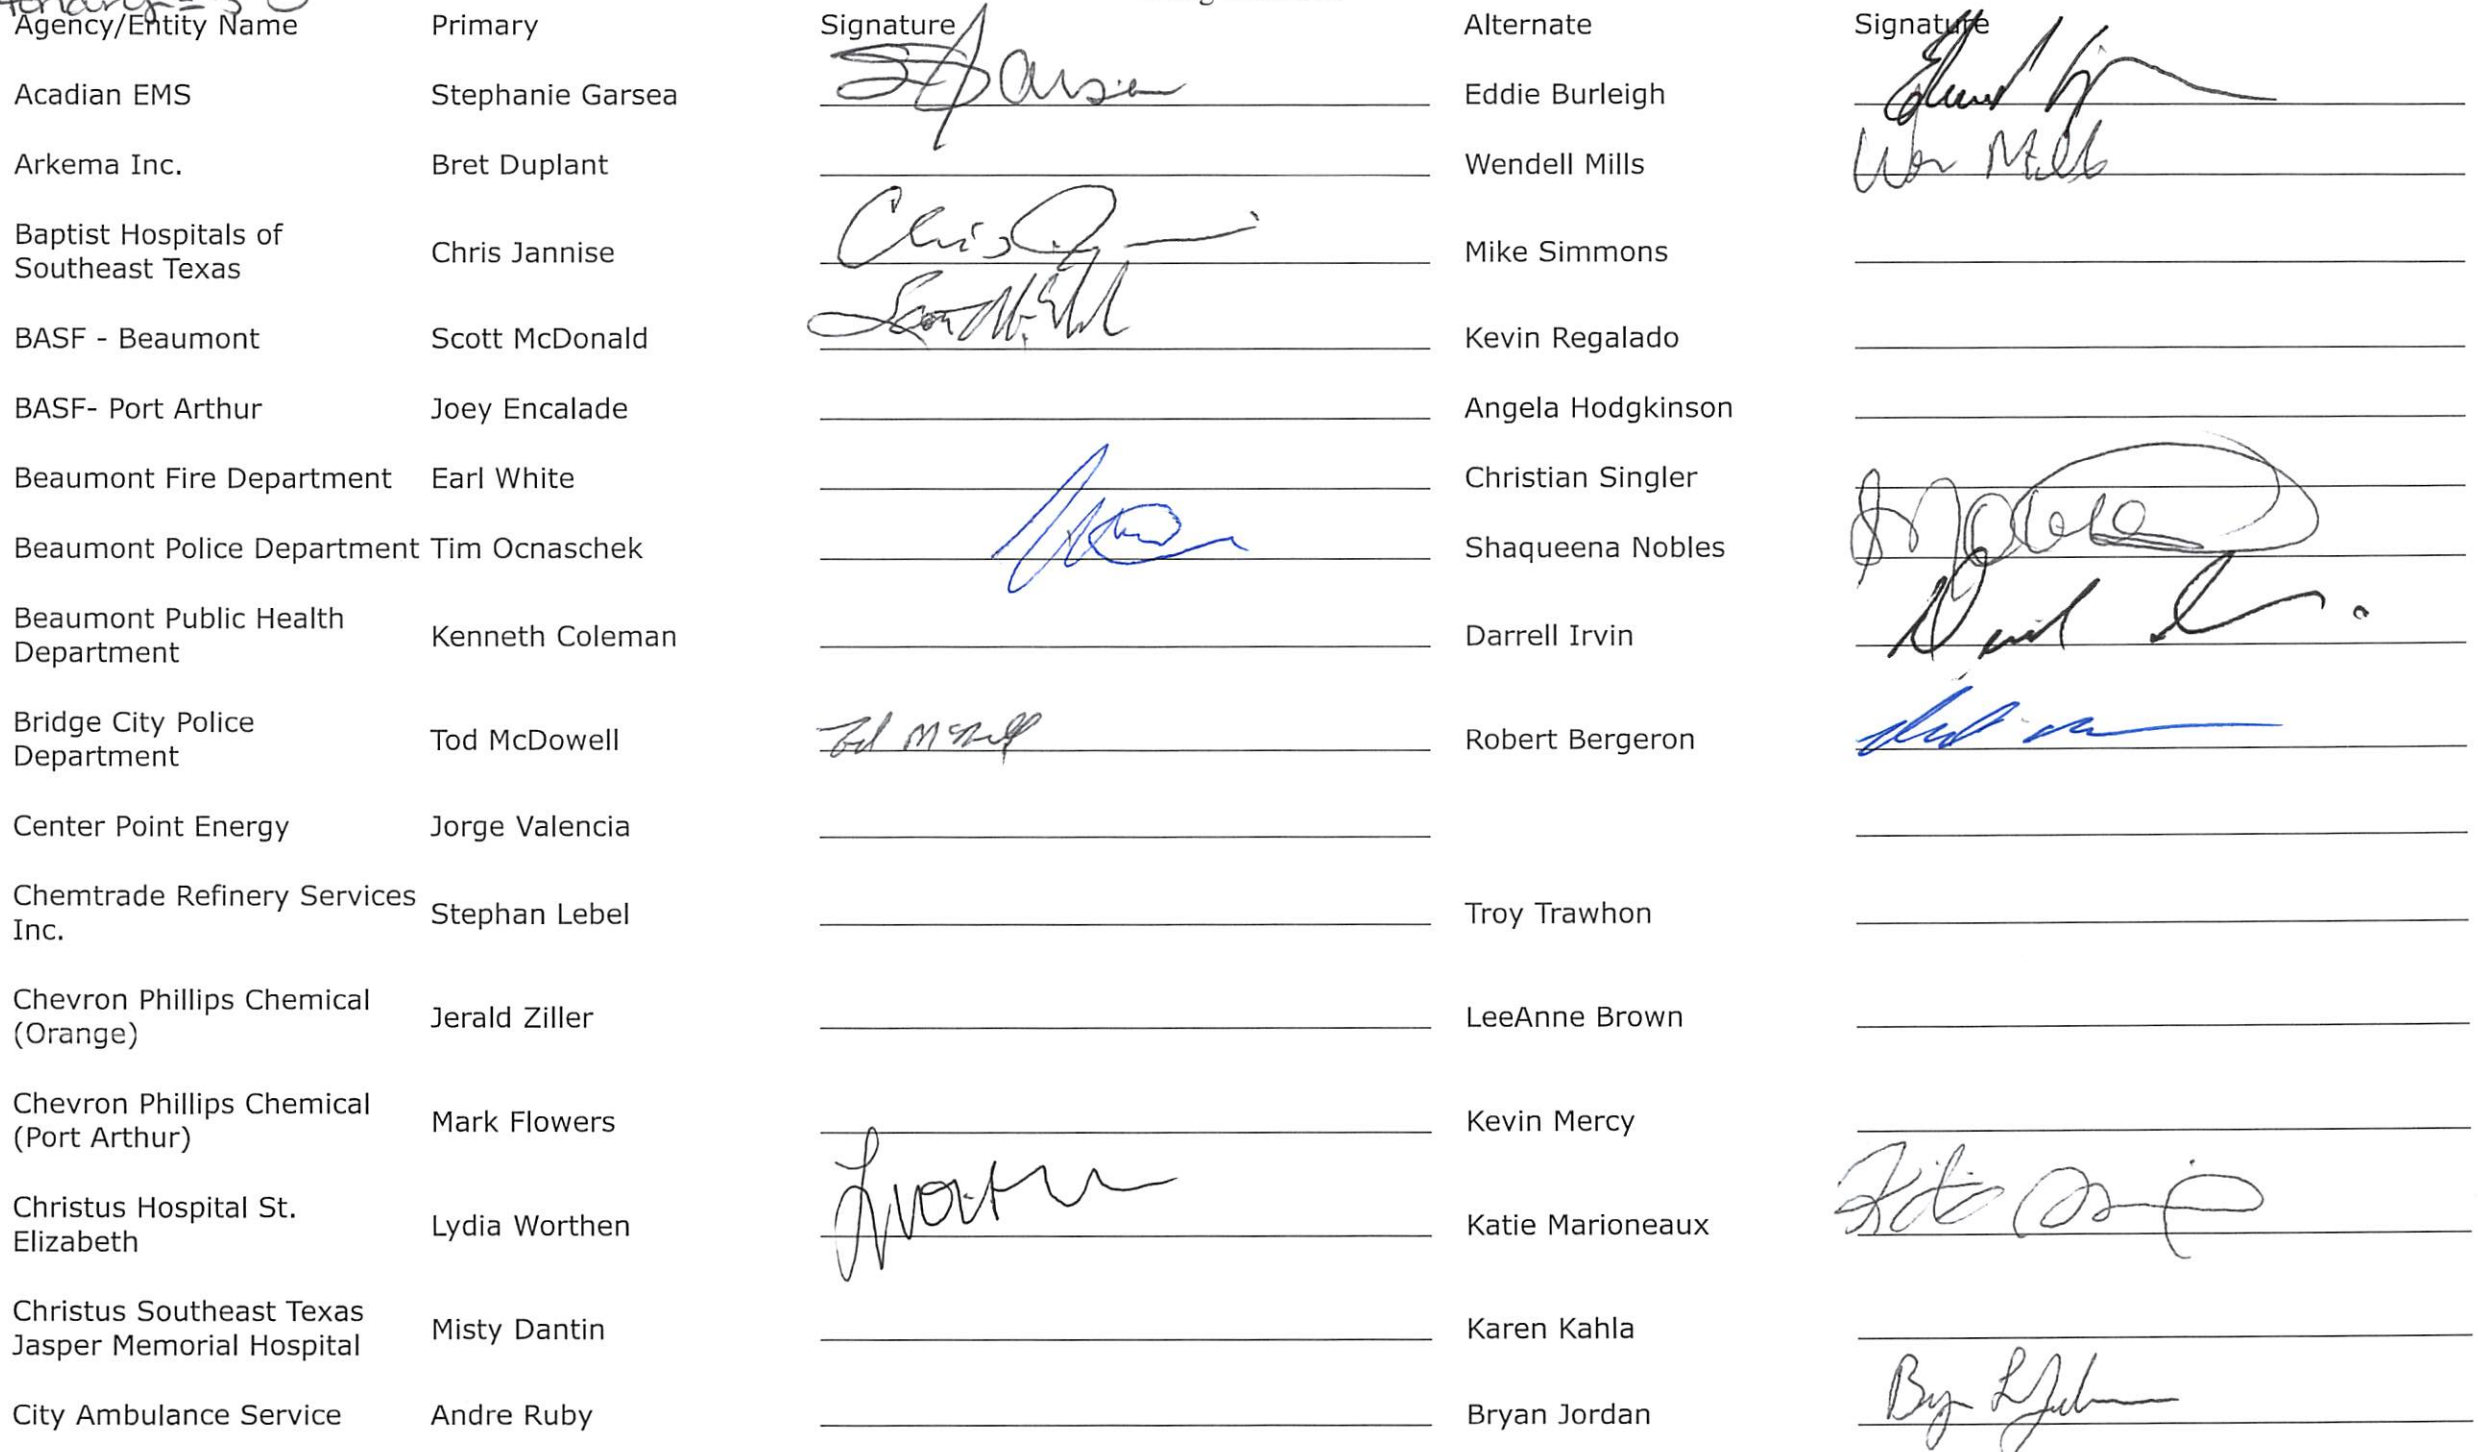 Agency/Entity Name Primary Signature Alternate Signature
Acadian EMS Stephanie Garsea Eddie Burleigh
Arkema Inc. Bret Duplant Wendell Mills
Baptist Hospitals of
Southeast Texas Chris Jannise Chris Mike Simmons
BASF - Beaumont Scott McDonald Kevin Regalado
BASF- Port Arthur Joey Encalade Angela Hodgkinson
Beaumont Fire Department Earl White Christian Singler
Beaumont Police Department Tim Ocnaschek Shaqueena Nobles
Beaumont Public Health
Department Kenneth Coleman Darrell Irvin
Bridge City Police
Department Tod McDowell Robert Bergeron
Center Point Energy Jorge Valencia
Chemtrade Refinery Services
Inc. Stephan Lebel Troy Trawhon
Chevron Phillips Chemical
(Orange) Jerald Ziller LeeAnne Brown
Chevron Phillips Chemical
(Port Arthur) Mark Flowers Kevin Mercy
Christus Hospital St.
Elizabeth Lydia Worthen Katie Marioneaux
Christus Southeast Texas
Jasper Memorial Hospital Misty Dantin Karen Kahla
City Ambulance Service Andre Ruby Bryan Jordan